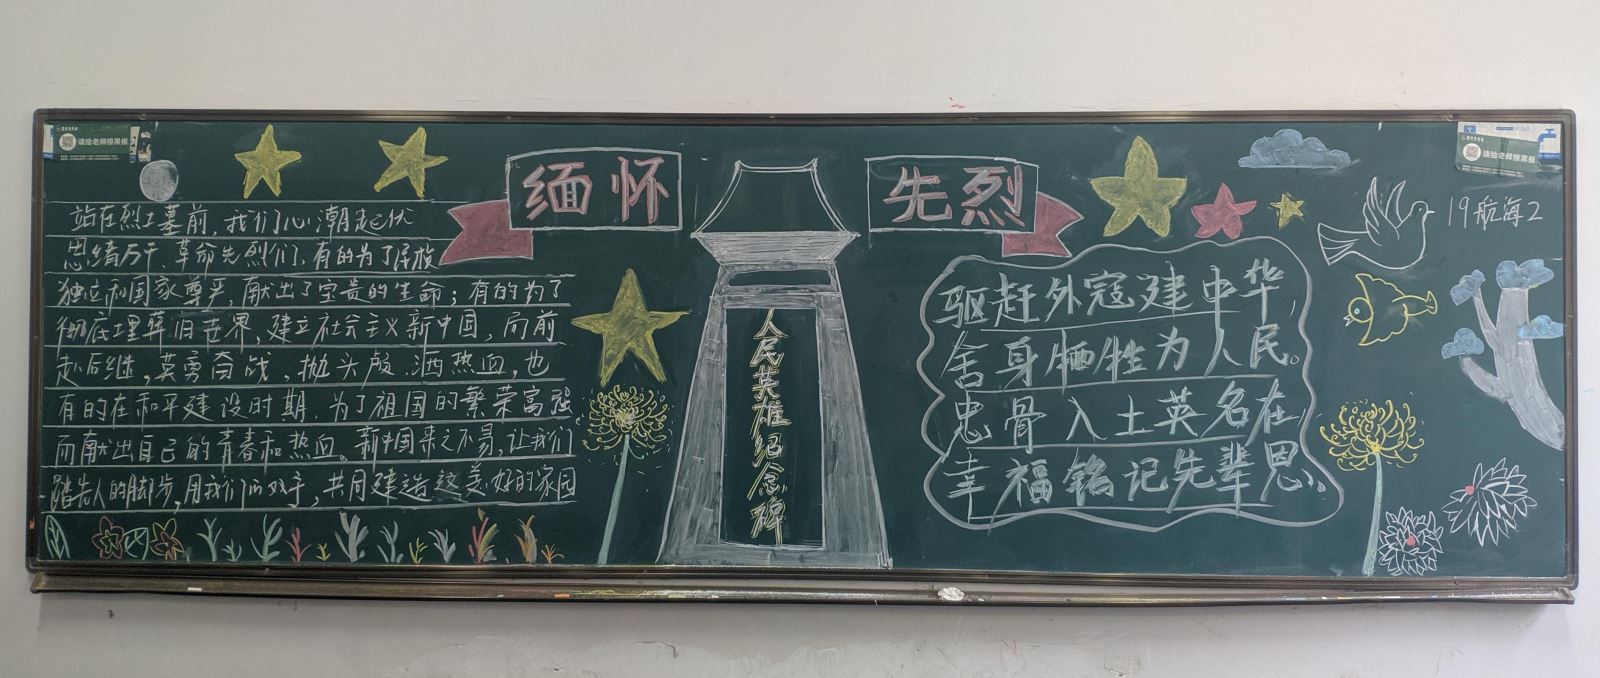 请给老师擦黑板
缅怀
先烈
站在烈士墓前，我们心潮起伏
思绪万千、革命先烈们，有的为了民族
独立和国家尊严，献出了宝贵的生命；有的为了
彻底埋葬旧世界，建立社会主义新中国，而前
赴后继，英勇奋战、抛头颅、洒热血，也
有的在和平建设时期，为了祖国的繁荣富强
而献出自己的青春和热血。新中国来之不易，让我们
踏先人的脚步，用我们的双手，共同建造这美好的家园
人民英雄纪念碑
驱赶外寇建中华，
舍身牺牲为人民。
忠骨入土英名在，
幸福铭记先辈恩。
请给老师擦黑板
19航海2